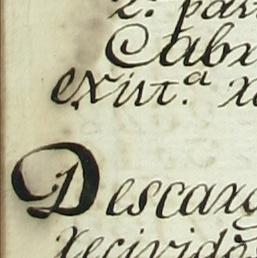 2.ª par
Cabx
exivt.ª x
Descarg
Recividos